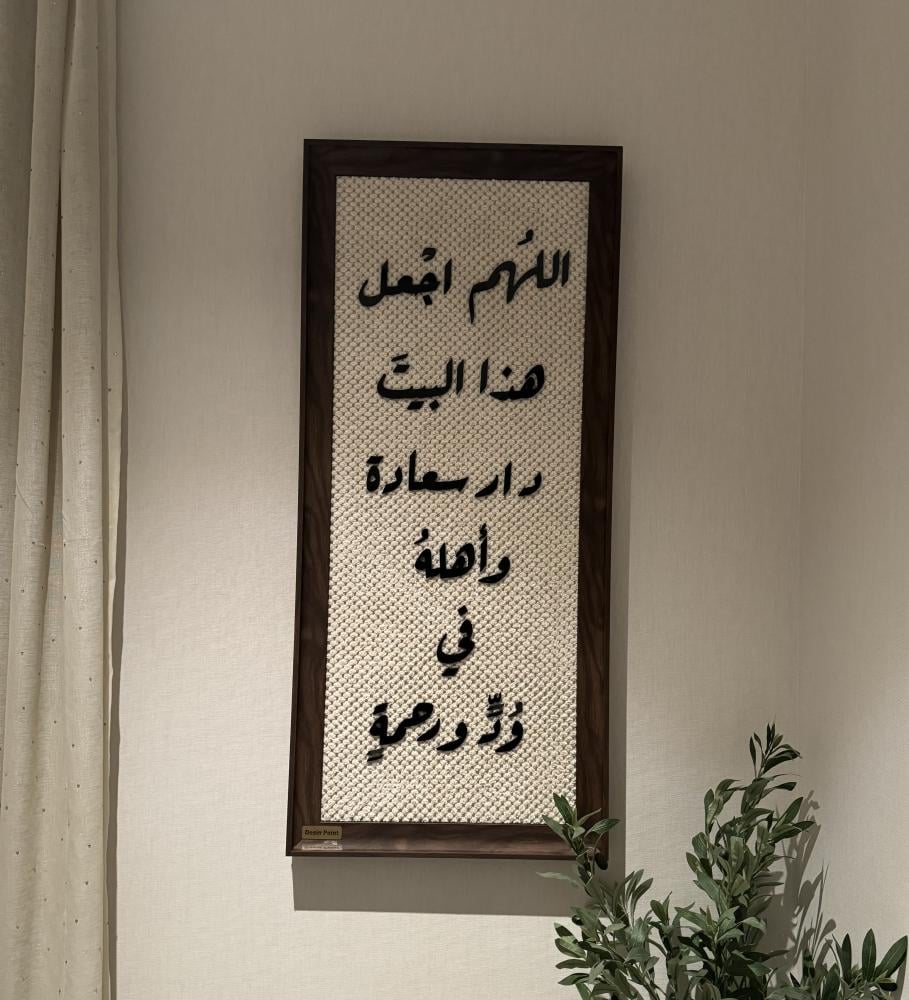 اللهُم اجْعل
هذا البيتَ
دار سعادة
وأهلهُ
في
وُدٍّ ورحمةٍ
Desin Point